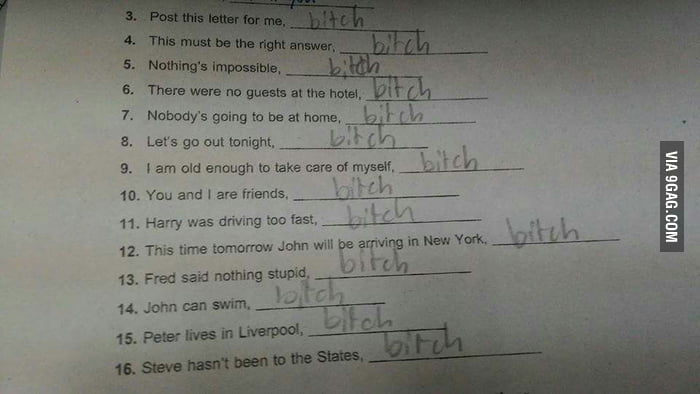 3. Post this letter for me, bitch
4. This must be the right answer, bitch
5. Nothing's impossible, bitch
6. There were no guests at the hotel, bitch
7. Nobody's going to be at home, bitch
8. Let's go out tonight, bitch
9. I am old enough to take care of myself, bitch
10. You and I are friends, bitch
11. Harry was driving too fast, bitch
12. This time tomorrow John will be arriving in New York, bitch
13. Fred said nothing stupid, bitch
14. John can swim, bitch
15. Peter lives in Liverpool, bitch
16. Steve hasn't been to the States, bitch
VIA 9GAG.COM